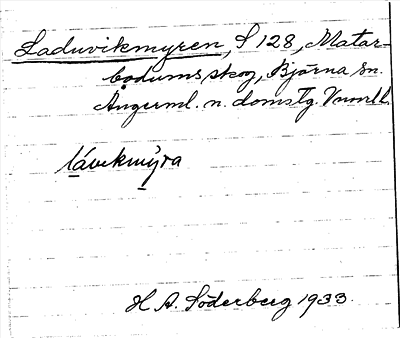 Laduvikmyren, S 128, Matar-
bodums skog, Björna sn.
Ångerml. n. domstg. Vnorrl l.
lávikmýra
H A. Söderberg 1933